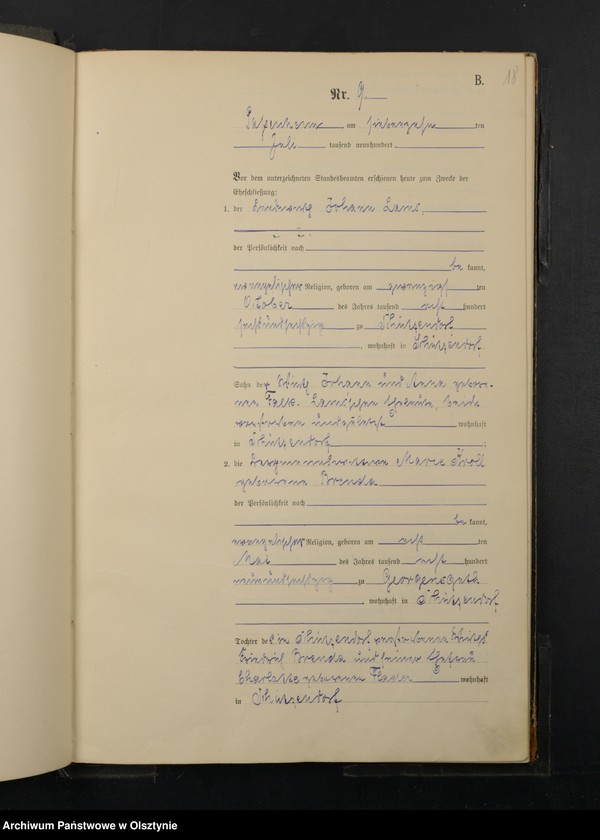 B.
18
Nr. 9
Passenheim am siebenzehn ten
Juli tausend neunhundert
Vor dem unterzeichneten Standesbeamten erschienen heute zum Zwecke der
Eheschließung:
1. der Johann
der Persönlichkeit nach
be kannt,
evangelischer Religion, geboren am zwanzigsten
October des Jahres tausend acht hundert
sechsundsechszig zu Schützendorf
, wohnhaft in Schützendorf
Sohn der Wirth Johann und Anna gebore-
nen Falk, beide
verstorben und zuletzt wohnhaft
in Schützendorf ;
2. die Marie Kroll
geborene Brenda
der Persönlichkeit nach
be kannt,
evangelischer Religion, geboren am acht ten
Mai des Jahres tausend acht hundert
neunundsechszig zu Georgensguth
, wohnhaft in Schützendorf
Tochter des in Schützendorf verstorbenen Wirths
Friedrich Brenda und seiner Ehefrau
Charlotte geborenen wohnhaft
in Schützendorf
Archiwum Państwowe w Olsztynie